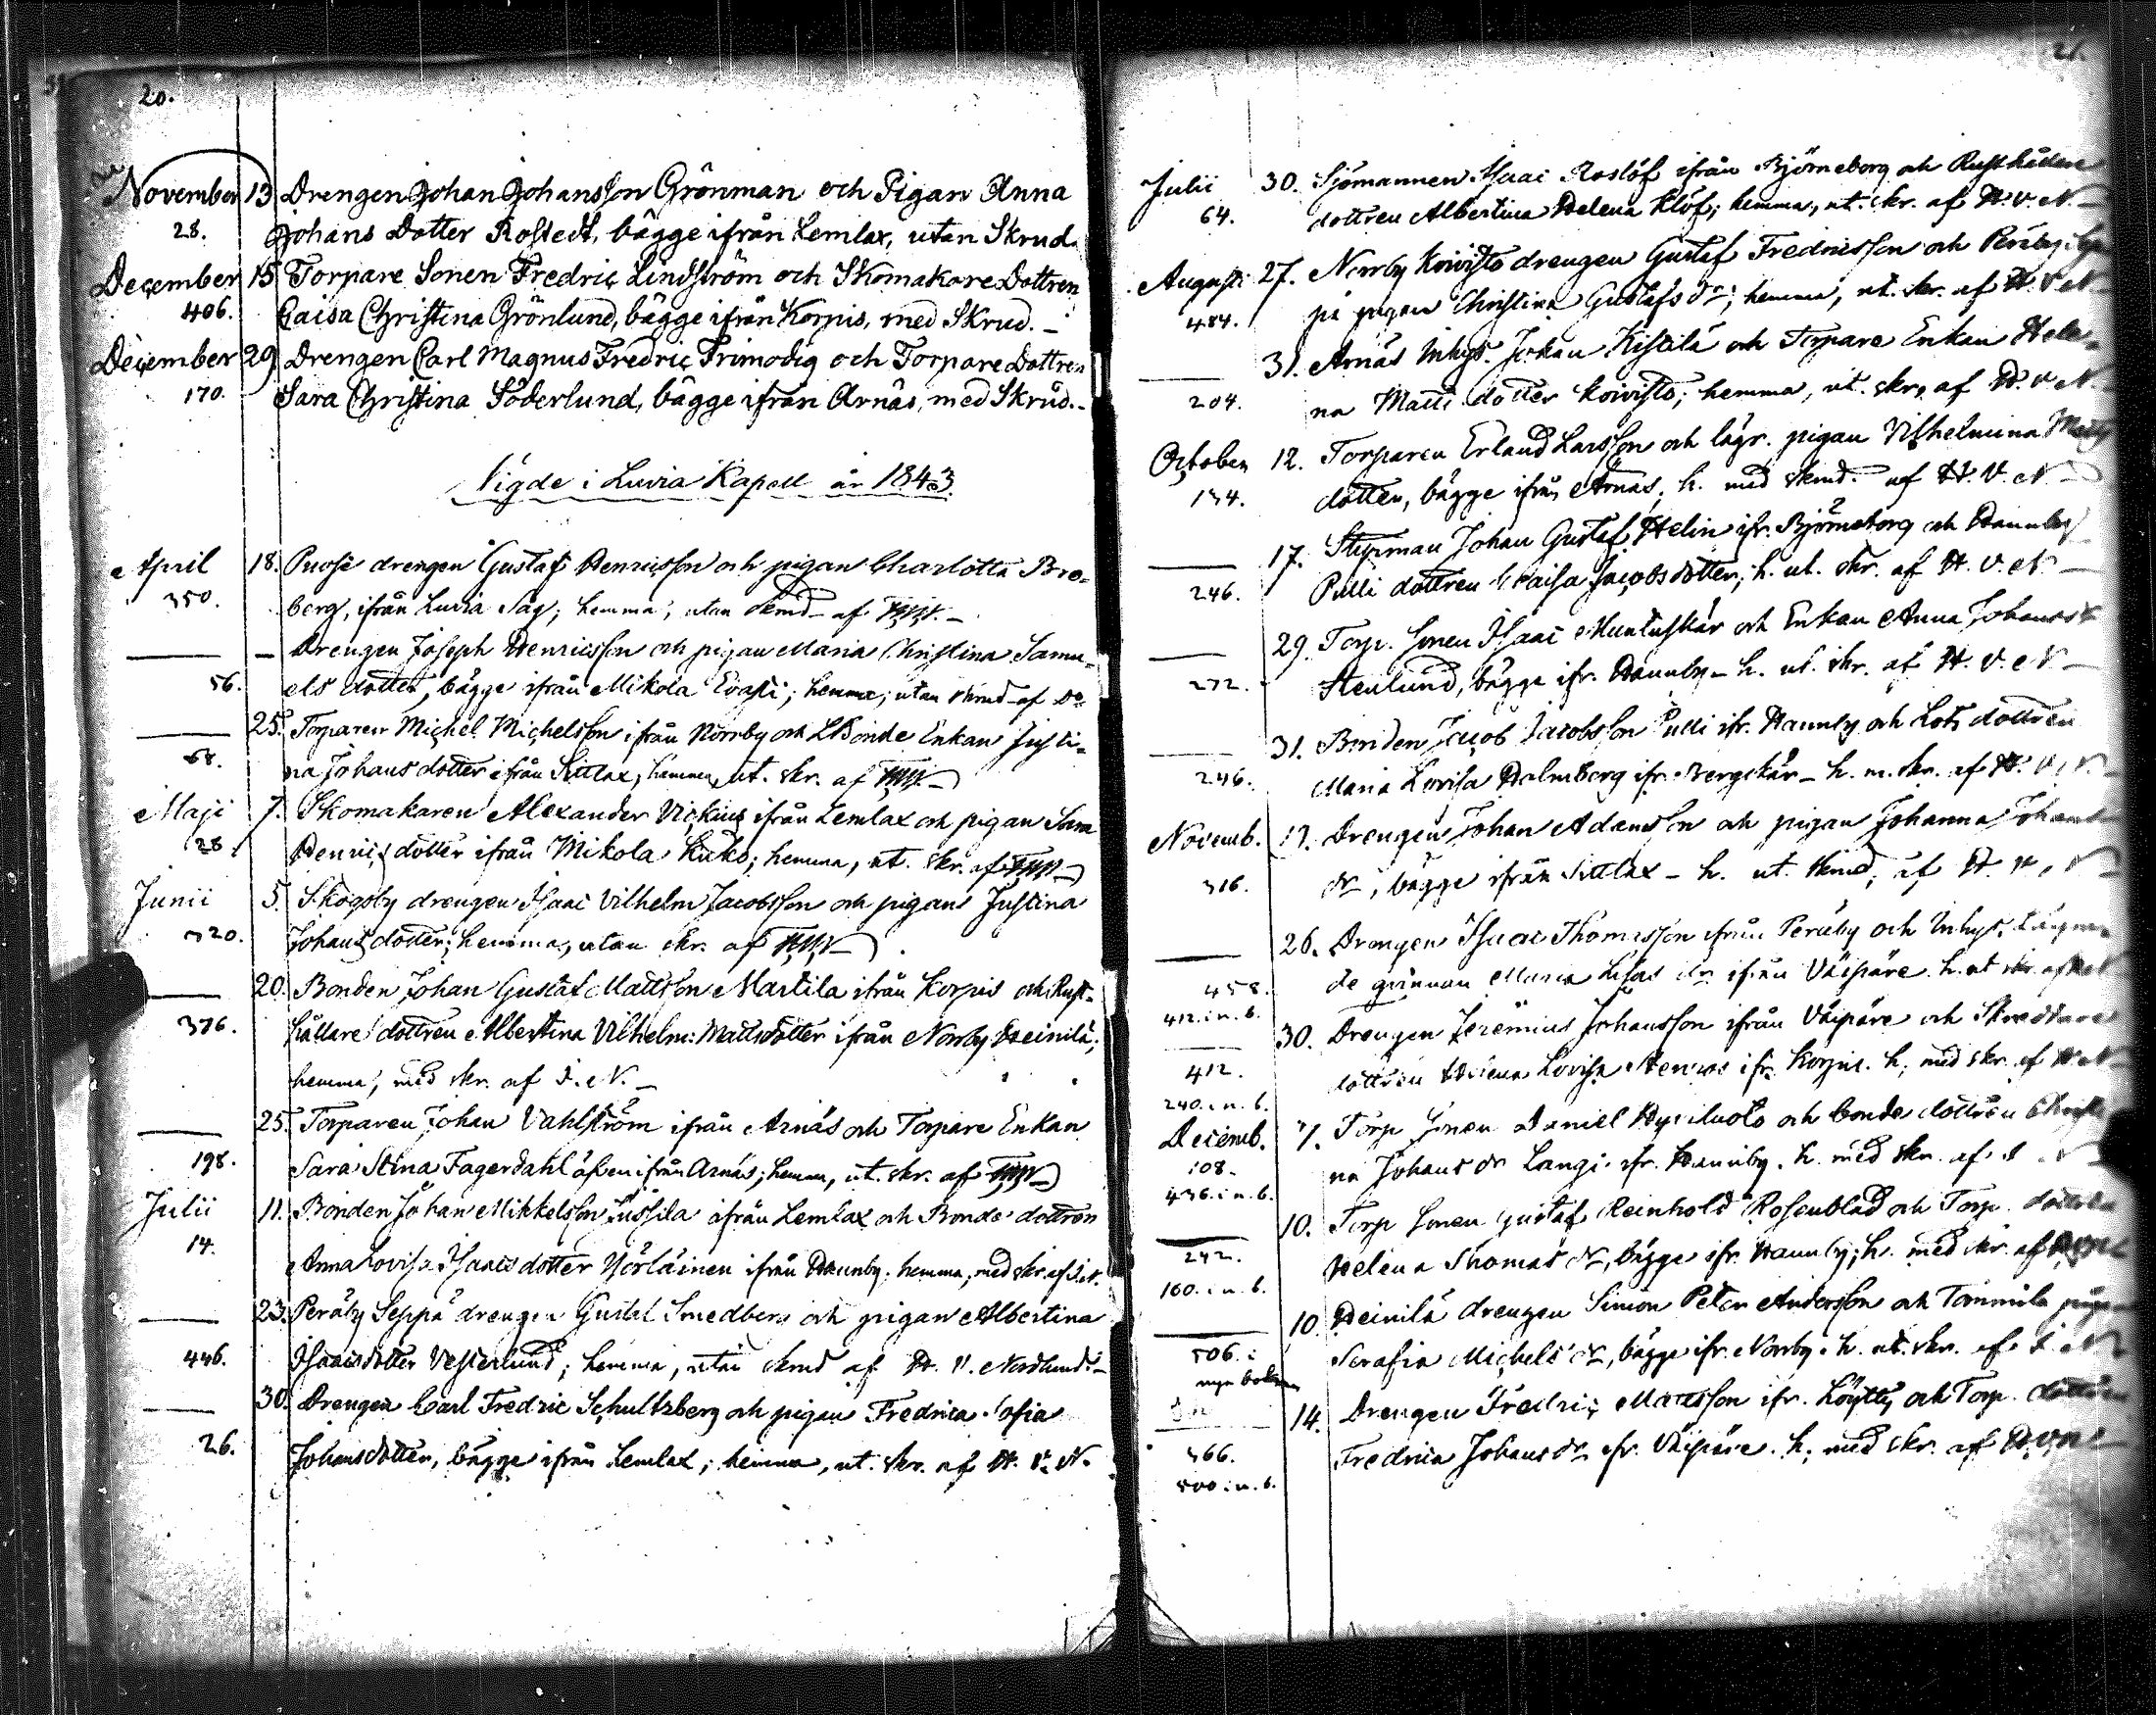 20.
November 13 Drengen Johan Johansson Grönman och Pigan Anna
28. Johans Dotter Rostedt, bägge ifrån Lemlax, utan Skrud.
December 15 Torpare Sonen Fredric Lindström och Skomakare Dottren
406. Caisa Christina Grönlund, bägge ifrån Korpis, med Skrud. –
December 29 Drengen Carl Magnus Fredric Frimodig och Torpare Dottren
170. Sara Christina Söderlund, bägge ifrån Arnäs, med Skrud. –
Vigde i Luvia Kapell år 1843
April 18. Drengen Gustaf Henricsson och pigan Charlotta Bro-
350. berg, ifrån Luvia Såg; hemma, utan skrud af
— Drengen Joseph Henricsson och pigan Maria Christina Samu-
56. els dotter, bägge ifrån Mikola Erasti; hemma, utan skrud af Do
25. Torparen Michel Michelsson ifrån Norrby och Bonde Enkan Justi-
58. na Johans dotter ifrån Sittlax, hemma, ut. skr. af
Maji 7. Skomakaren Alexander Vickius ifrån Lemlax och pigan Sara
28. Henrics dotter ifrån Mikola Kuko; hemma, ut. skr. af
Junii 5. Skogsby drengen Isaac Vilhelm Jacobsson och pigan Justina
320. Johans dotter; hemma, utan skr. af
20. Bonden Johan Gustaf Mattsson Martila ifrån Korpis och Rust-
376. hållare dottren Albertina Vilhelm: Mattsdotter ifrån Norrby Heinilä;
hemma, med skr. af I. N. –
25. Torparen Johan Vahlström ifrån Arnäs och Torpare Enkan
198. Sara Stina Fagerdahl äfven ifrån Arnäs; hemma, ut. skr. af
Julii 11. Bonden Johan Mikkelsson Jussila ifrån Lemlax och Bonde dottren
14. Anna Lovisa Isaacs dotter Yörläinen ifrån Hannby; hemma, med skr. af I. N.
23. Peräby Seppä drengen Gustaf Smedberg och pigan Albertina
446. Isaacsdotter Vesterlund; hemma, utan skrud af H. V. Nordlund. –
30. Drengen Carl Fredric Schultzberg och pigan Fredrica Sofia
26. Johansdotter, bägge ifrån Lemlax; hemma, ut. skr. af H. V. N.
21.
Julii 30. Sjömannen Isaac Roslöf ifrån Björneborg och Rusthållare
64. dottren Albertina Helena Klöf; hemma, ut. skr. af H. V. N. –
Augusti 27. Norrby Koivisto drengen Gustaf Fredricsson och Peräby
484. pigan Christina Gustafs dr; hemma, ut. skr. af H. V. N –
31. Arnäs Inhys. Johan Kistilä och Torpare Enkan Hele-
204. na Matts dotter Koivisto; hemma, ut. skr. af H. V. N.
October 12. Torparen Erland Larsson och lägr. pigan Vilhelmina Matts
134. dotter, bägge ifrån Arnäs, h. med skrud. af H. V. N –
17. Styrman Johan Gustaf Helin ifr. Björneborg och Hannby
246. Pulli dottren Caisa Jacobs dotter; h. ut. skr. af H. V. N –
29. Torp. Sonen Isaac Muntuskär och Enkan Anna Johans dr
272. Stenlund, bägge ifr. Hannby – h. ut. skr. af H. V. N –
31. Bonden Jacob Jacobsson Pulli ifr. Hannby och Lots dottren
246. Maria Lovisa Holmberg ifr. Bergskär – h. m. skr. af H. V. N. –
Novemb. 13. Drengen Johan Adamsson och pigan Johanna Johans
316. dr, bägge ifrån Sittlax – h. ut. skrud, af H. V. N –
26. Drengen Isaac Thomasson ifrån Peräby och Inhys. Lägra-
458. de qvinnan Maria Lisa dr ifrån Väipäre. h. ut skr. af
412. i n. b.
30. Drengen Jeremias Johansson ifrån Väipäre och Skräddare
412. dottren Helena Lovisa Stenros ifr. Korpis. h; med skr. af H N
240. i n. b.
Decemb. 7. Torp Sonen Daniel och bonde dottren Christi
108. na Johans dr Langi ifr. Hannby. h. med skr. af I N –
436. i n. b.
10. Torp Sonen Gustaf Reinhold Rosenblad och Torp. dottren
242. Helena Thomas dr, bägge ifr. Hannby; h. med skr. af
160. i n. b.
10. Heinilä drengen Simon Peter Andersson och Tommila pigan
506. i Serafia Michels dr, bägge ifr. Norrby. h. ut. skr. af I. N –
nya boken
14. Drengen Fredric Mattsson ifr. Löytty och Torp. dottren
366. Fredrica Johans dr ifr. Väipäre. h; med skr. af
500 i n. b.